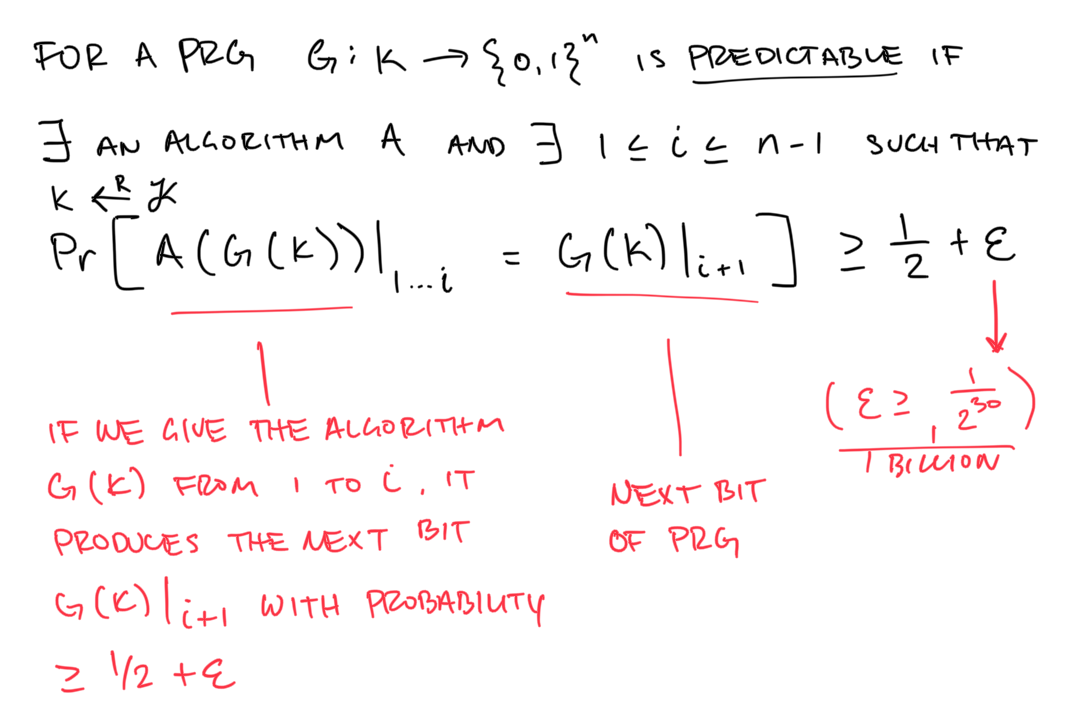 FOR A PRG G : K → {0,1}ⁿ IS PREDICTABLE IF
∃ AN ALGORITHM A AND ∃ 1 ≤ i ≤ n-1 SUCH THAT
K ←ᴿ 𝒦
Pr[ A(G(K))|₁...ᵢ = G(K)|ᵢ₊₁ ] ≥ 1/2 + ε
(ε ≥ 1/2³⁰)
1/1 BILLION
IF WE GIVE THE ALGORITHM
G(K) FROM 1 TO i, IT
PRODUCES THE NEXT BIT
G(K)|ᵢ₊₁ WITH PROBABILITY
≥ 1/2 + ε
NEXT BIT
OF PRG